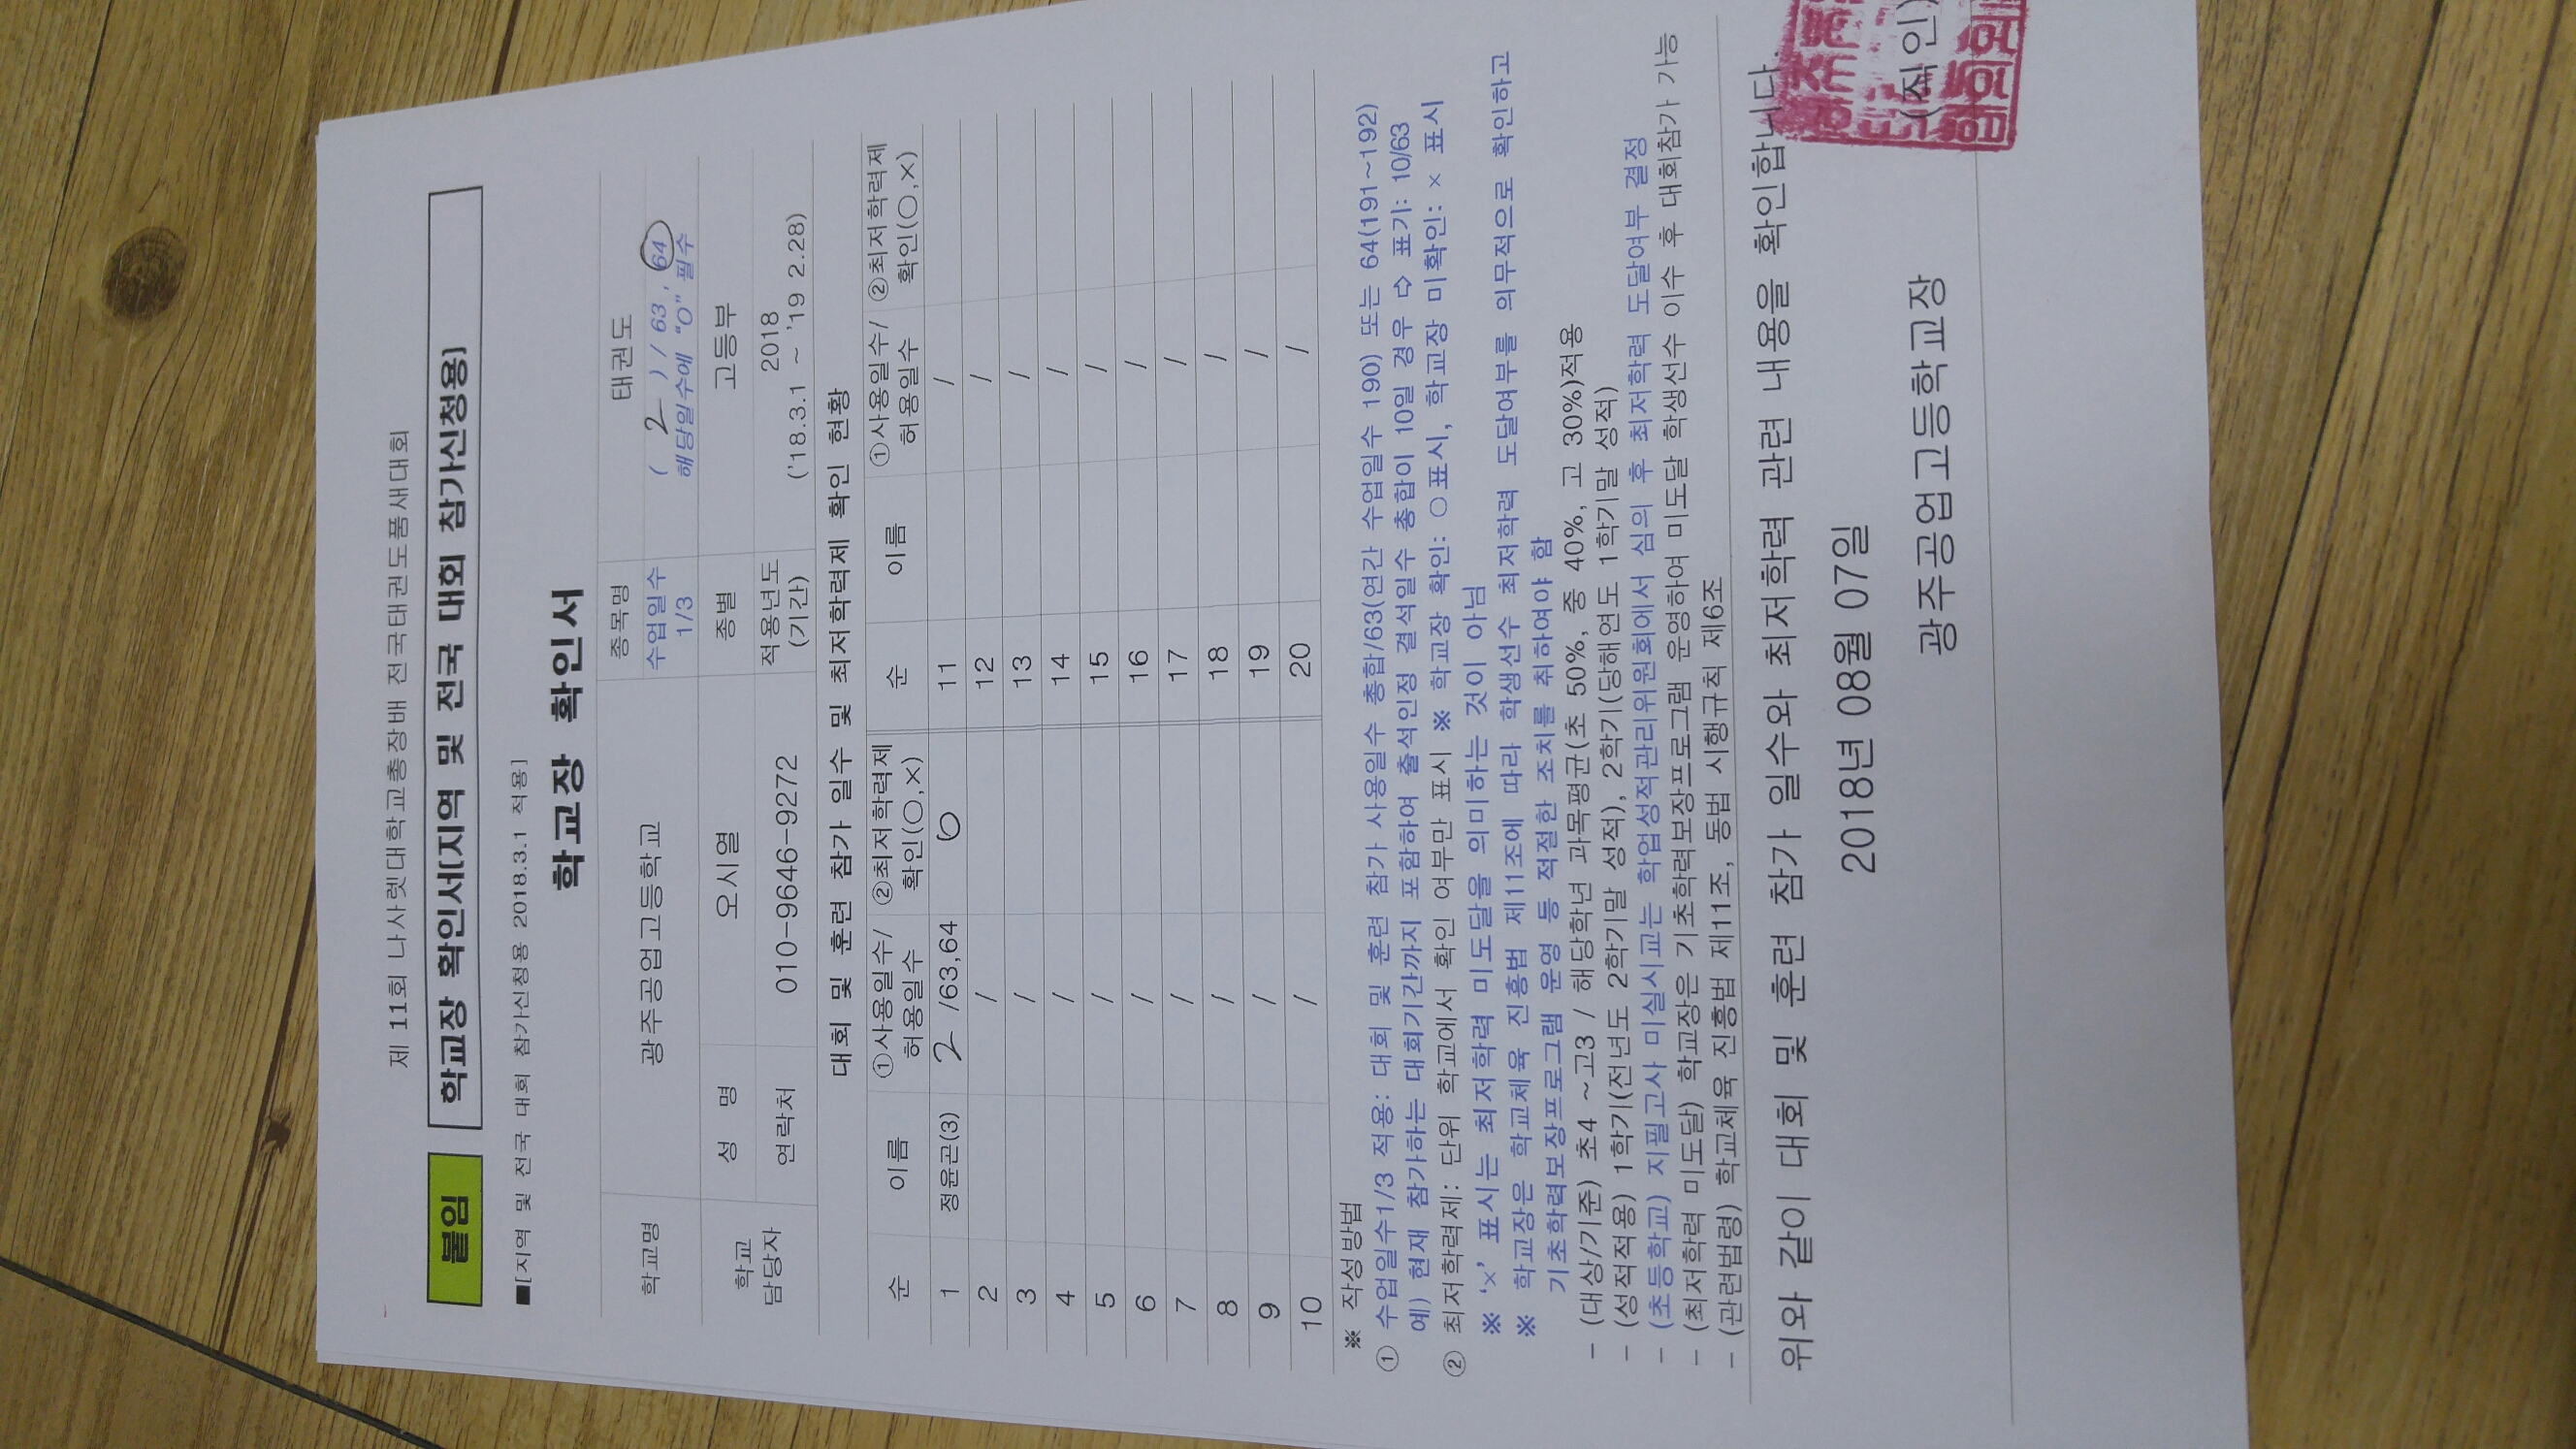 제 11회 나사렛대학교총장배 전국태권도품새대회
붙임 학교장 확인서(지역 및 전국 대회 참가신청용)
■[지역 및 전국 대회 참가신청용 2018.3.1 적용]
학교장 확인서
학교명 광주공업고등학교 종목명 태권도
수업일수 1/3 ( 2 ) / 63 , 64
해당일수에 "O" 필수
학교 담당자 성 명 오시열 종별 고등부
연락처 010-9646-9272 적용년도 (기간) 2018
('18.3.1 ~ '19 2.28)
대회 및 훈련 참가 일수 및 최저학력제 확인 현황
순 이름 ①사용일수/허용일수 ②최저학력제 확인(○,×) 순 이름 ①사용일수/허용일수 ②최저학력제 확인(○,×)
1 정윤곤(3) 2 /63,64 O 11 /
2 / 12 /
3 / 13 /
4 / 14 /
5 / 15 /
6 / 16 /
7 / 17 /
8 / 18 /
9 / 19 /
10 / 20 /
※ 작성방법
① 수업일수1/3 적용: 대회 및 훈련 참가 사용일수 총합/63(연간 수업일수 190) 또는 64(191~192)
예) 현재 참가하는 대회기간까지 포함하여 출석인정 결석일수 총합이 10일 경우 ⇨ 표기: 10/63
② 최저학력제: 단위 학교에서 확인 여부만 표시 ※ 학교장 확인: ○표시, 학교장 미확인: × 표시
※ '×' 표시는 최저학력 미도달을 의미하는 것이 아님
※ 학교장은 학교체육 진흥법 제11조에 따라 학생선수 최저학력 도달여부를 의무적으로 확인하고
기초학력보장프로그램 운영 등 적절한 조치를 취하여야 함
- (대상/기준) 초4 ~고3 / 해당학년 과목평균(초 50%, 중 40%, 고 30%)적용
- (성적적용) 1학기(전년도 2학기말 성적), 2학기(당해연도 1학기말 성적)
- (초등학교) 지필고사 미실시교는 학업성적관리위원회에서 심의 후 최저학력 도달여부 결정
- (최저학력 미도달) 학교장은 기초학력보장프로그램 운영하여 미도달 학생선수 이수 후 대회참가 가능
- (관련법령) 학교체육 진흥법 제11조, 동법 시행규칙 제6조
위와 같이 대회 및 훈련 참가 일수와 최저학력 관련 내용을 확인합니다.
2018년 08월 07일
광주공업고등학교장 (직인)